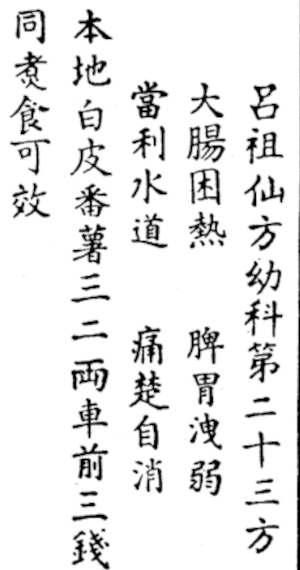 呂祖仙方幼科第二十三方
大腸困熱　脾胃洩弱
當利水道　痛楚自消
本地白皮番薯三二両車前三錢
同煑食可效